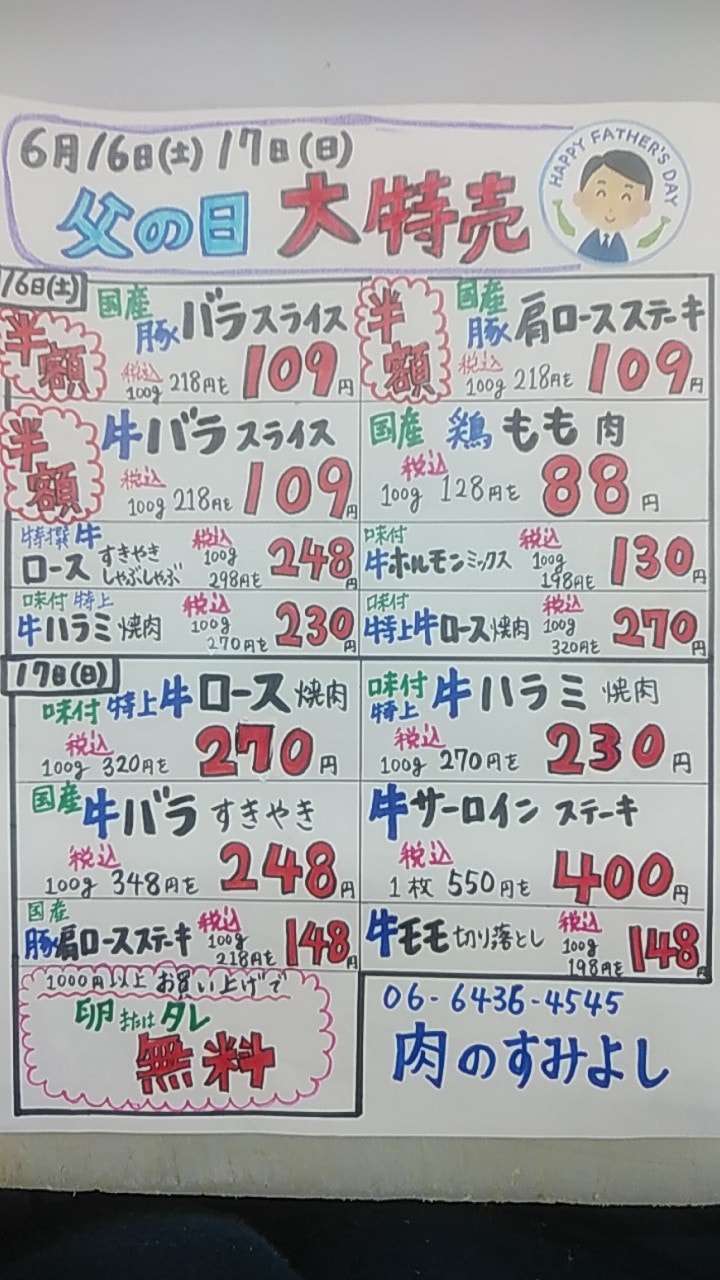 6月16日(土)17日(日)
父の日 大特売
HAPPY FATHER'S DAY
16日(土)
半額
国産
豚 バラスライス
税込
100g 218円を 109円
半額
国産
豚 肩ロースステーキ
税込
100g 218円を 109円
半額
牛バラスライス
税込
100g 218円を 109円
国産 鶏 もも肉
税込
100g 128円を 88円
特撰牛
ロース すきやき
しゃぶしゃぶ
税込
100g
298円を 248円
味付
牛ホルモンミックス
税込
100g
198円を 130円
味付 特上
牛ハラミ焼肉
税込
100g
270円を 230円
味付
特上牛ロース焼肉
税込
100g
320円を 270円
17日(日)
味付 特上牛ロース焼肉
税込
100g 320円を 270円
味付
特上 牛ハラミ 焼肉
税込
100g 270円を 230円
国産
牛バラすきやき
税込
100g 348円を 248円
牛サーロインステーキ
税込
1枚 550円を 400円
国産
豚肩ロースステーキ
税込
100g
218円を 148円
牛モモ切り落とし
税込
100g
198円を 148円
1000円以上お買い上げで
卵またはタレ
無料
06-6436-4545
肉のすみよし